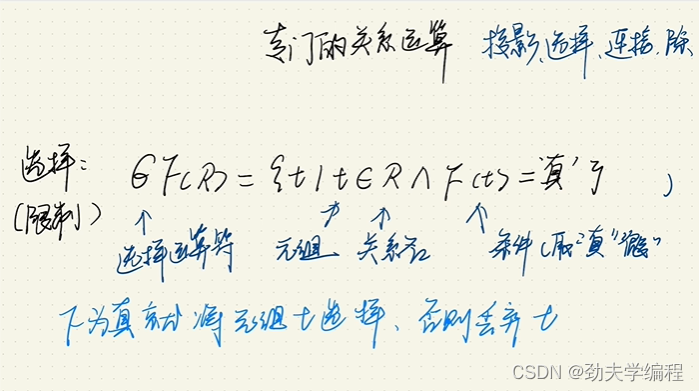 专门的关系运算 投影、选择、连接、除
选择：
(限制)
σF(R)={t|t∈R∧F(t)='真'}
选择运算符 元组 关系名 条件(取"真""假"
F为真就将元组t选择、否则丢弃t
CSDN @劲夫学编程